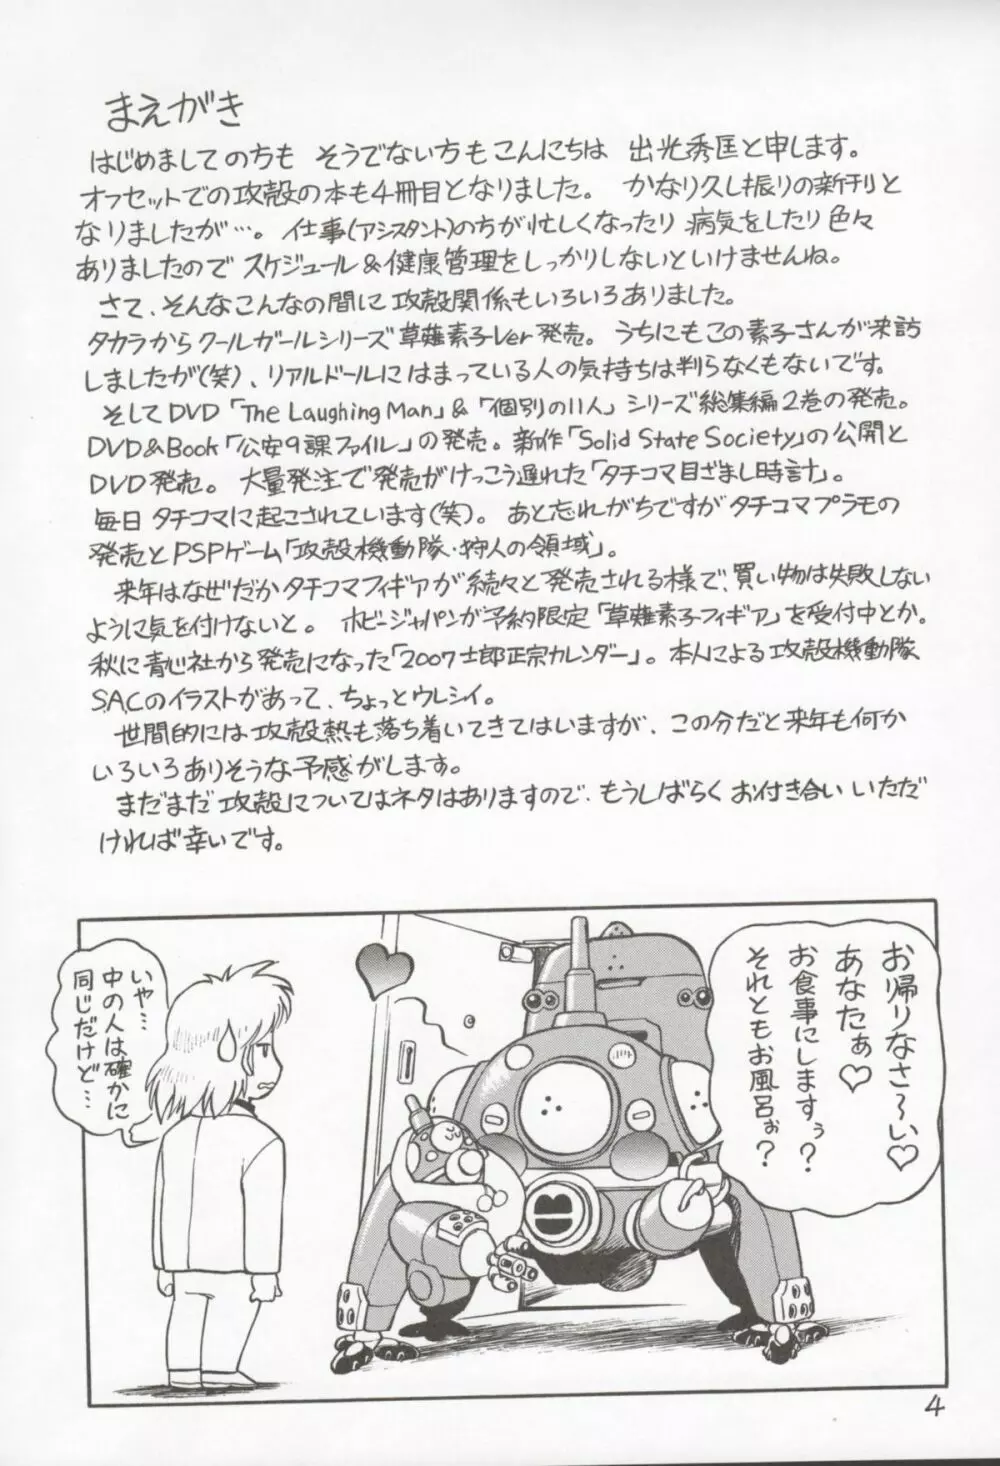 まえがき
はじめましての方も そうでない方もこんにちは 出光秀匡と申します。
オフセットでの攻殻の本も4冊目となりました。 かなり久し振りの新刊と
なりましたが…。仕事(アシスタント)の方が忙しくなったり 病気をしたり色々
ありましたので スケジュール&健康管理をしっかりしないといけませんね。
さて、そんなこんなの間に攻殻関係もいろいろありました。
タカラからクールガールシリーズ草薙素子Ver発売。 うちにもこの素子さんが来訪
しましたが(笑)、リアルドールにはまっている人の気持ちは判らなくもないです。
そしてDVD「The Laughing Man」&「個別の11人」シリーズ総集編2巻の発売。
DVD&Book「公安9課ファイル」の発売。 新作「Solid State Society」の公開と
DVD発売。 大量発注で発売がけっこう遅れた「タチコマ目ざまし時計」。
毎日タチコマに起こされています(笑)。 あと忘れがちですがタチコマプラモの
発売とPSPゲーム「攻殻機動隊・狩人の領域」。
来年はなぜだかタチコマフィギアが続々と発売される様で、買い物は失敗しない
ように気を付けないと。 ホビージャパンが予約限定「草薙素子フィギア」を受付中とか。
秋に青心社から発売になった「2007士郎正宗カレンダー」。本人による攻殻機動隊
S.A.C.のイラストがあって、ちょっとウレシイ。
世間的には攻殻熱も落ち着いてきてはいますが、この分だと来年も何か
いろいろありそうな予感がします。
まだまだ攻殻についてはネタはありますので、もうしばらくお付き合いいただ
ければ幸いです。
お帰りなさ〜い♡
あなたぁ♡
お食事にしますぅ?
それともお風呂ぉ?
いや…
中の人は確かに
同じだけど…
4